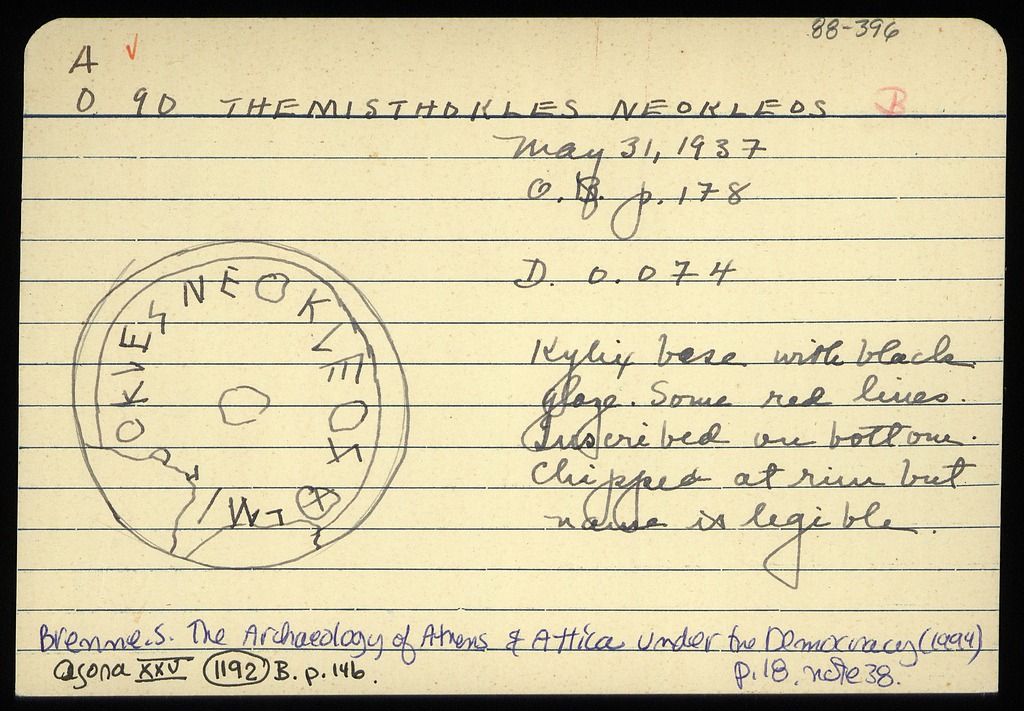 88-396
A ✓
O 90 THEMISTHOKLES NEOKLEOS B
May 31, 1937
p. 178
D. 0.074
Kylix base with black
glaze. Some red lines.
Inscribed on bottom.
Chipped at rim but
name is legible.
OKLES NEOKLEOS
Brenne.S. The Archaeology of Athens & Attica under the Democracy (1994)
p.18. note 38.
Agora XXV (1192) B. p. 146.